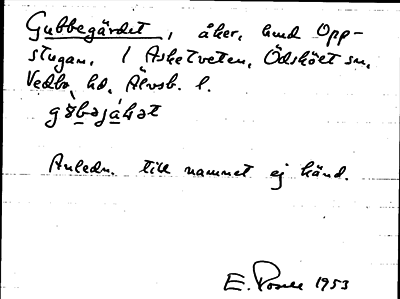 Gubbegärdet, åker, hmd Opp-
stugan, 1 Asketveten, Ödskölt sn,
Vedbo hd, Älvsb. l.
Anledn. till namnet ej känd.
E. 1953